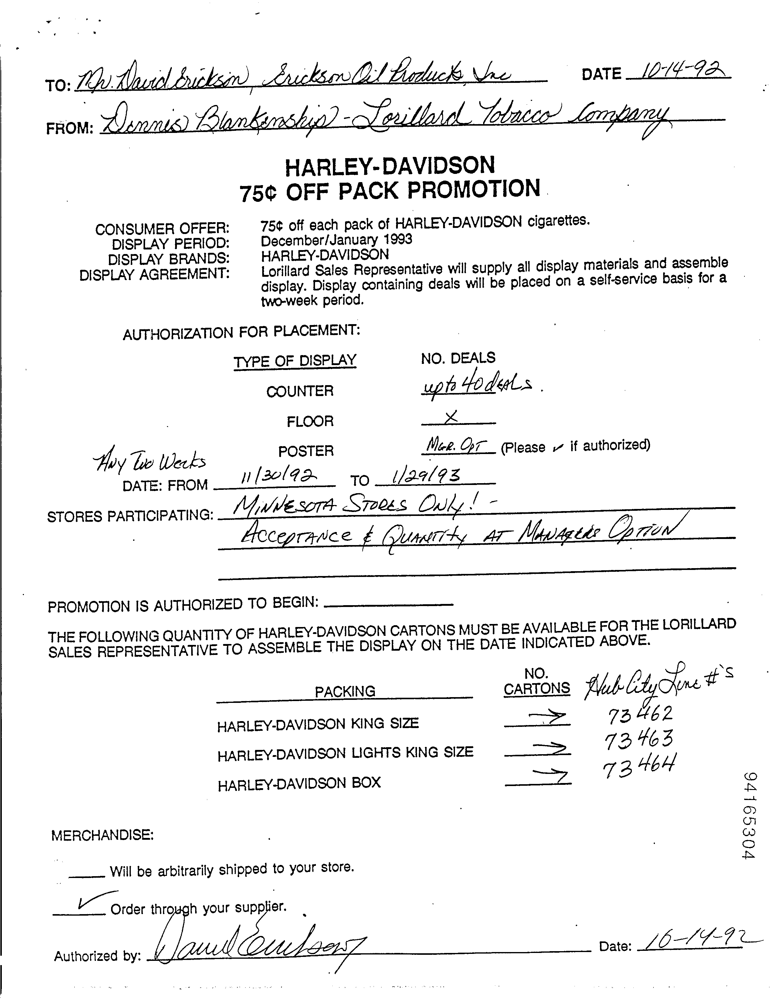 TO: Mr. David Erickson, Erickson Oil Products, Inc DATE 10-14-92
FROM: Dennis Blankenship - Lorillard Tobacco Company
HARLEY-DAVIDSON
75¢ OFF PACK PROMOTION
CONSUMER OFFER: 75¢ off each pack of HARLEY-DAVIDSON cigarettes.
DISPLAY PERIOD: December/January 1993
DISPLAY BRANDS: HARLEY-DAVIDSON
DISPLAY AGREEMENT: Lorillard Sales Representative will supply all display materials and assemble
display. Display containing deals will be placed on a self-service basis for a
two-week period.
AUTHORIZATION FOR PLACEMENT:
TYPE OF DISPLAY NO. DEALS
COUNTER up to 40 deals.
FLOOR X
POSTER MGR. OPT (Please ✓ if authorized)
Any Two Weeks
DATE: FROM 11/30/92 TO 1/29/93
STORES PARTICIPATING: MINNESOTA STORES ONLY! -
ACCEPTANCE & QUANTITY AT MANAGERS OPTION
PROMOTION IS AUTHORIZED TO BEGIN:
THE FOLLOWING QUANTITY OF HARLEY-DAVIDSON CARTONS MUST BE AVAILABLE FOR THE LORILLARD
SALES REPRESENTATIVE TO ASSEMBLE THE DISPLAY ON THE DATE INDICATED ABOVE.
PACKING NO. CARTONS Hub City Line #'s
HARLEY-DAVIDSON KING SIZE → 73462
HARLEY-DAVIDSON LIGHTS KING SIZE → 73463
HARLEY-DAVIDSON BOX → 73464
94165304
MERCHANDISE:
Will be arbitrarily shipped to your store.
✓ Order through your supplier.
Authorized by: David Erickson Date: 10-14-92